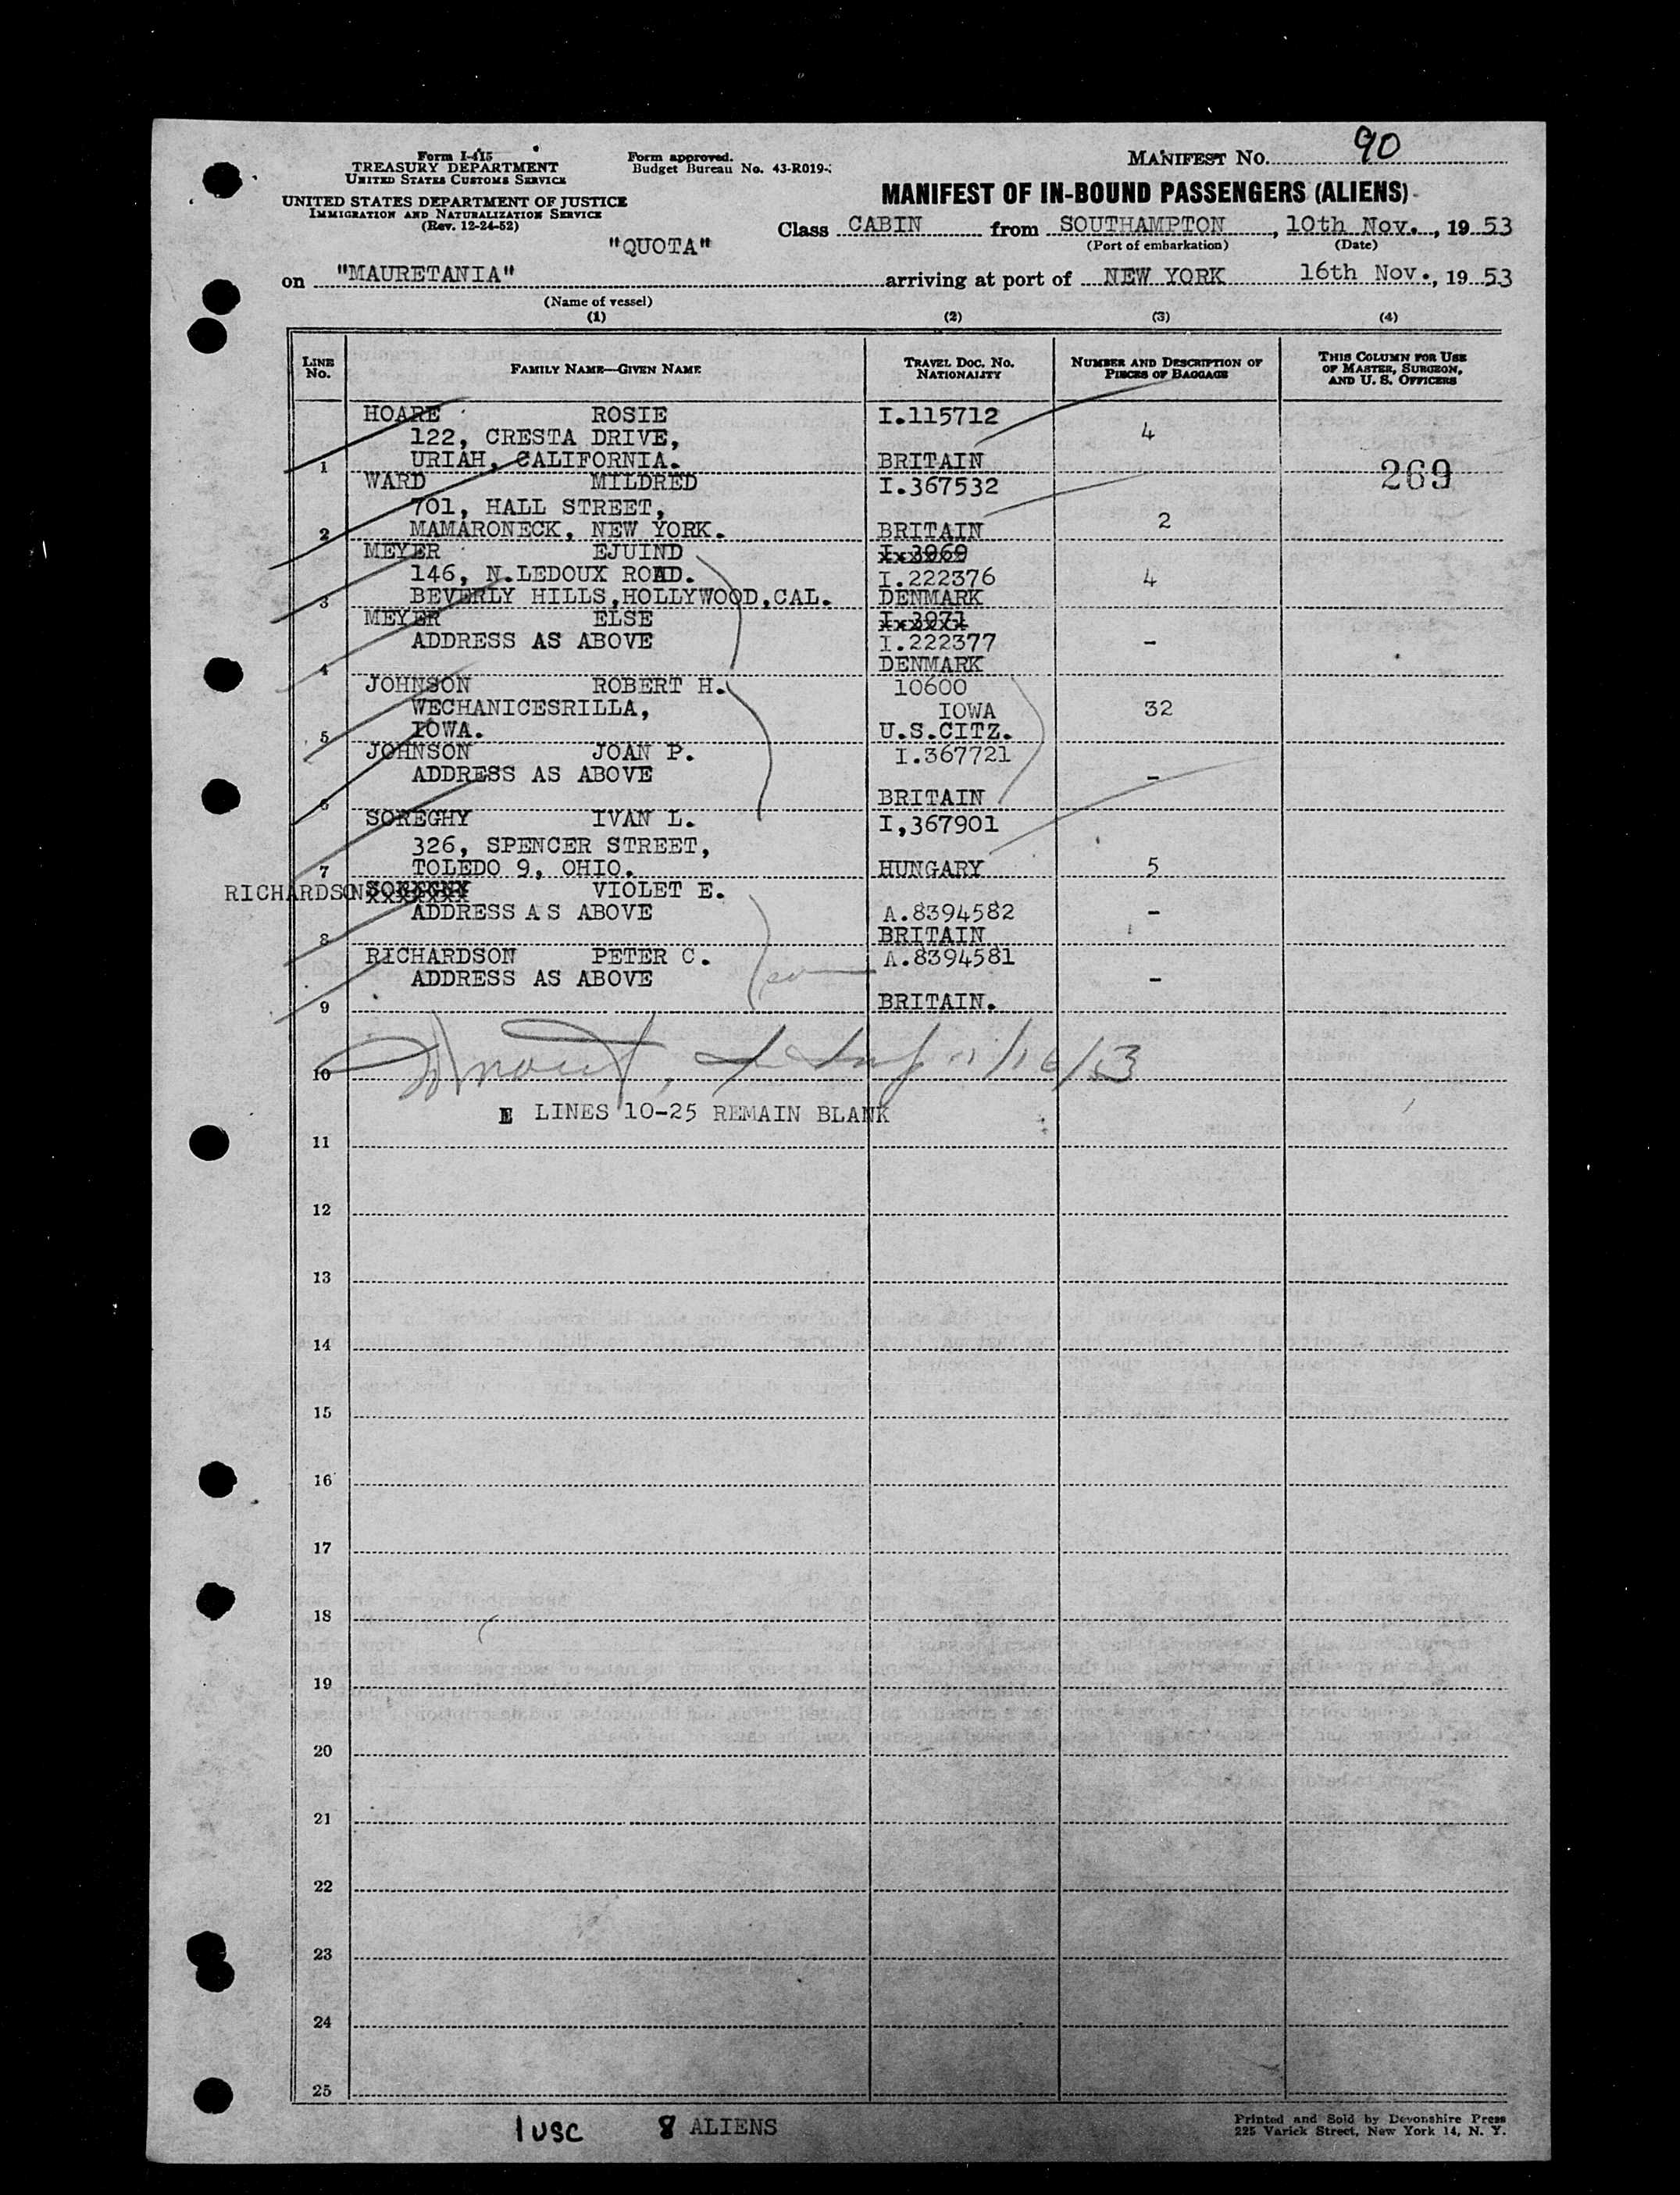 Form I-415
TREASURY DEPARTMENT
UNITED STATES CUSTOMS SERVICE
UNITED STATES DEPARTMENT OF JUSTICE
IMMIGRATION AND NATURALIZATION SERVICE
(Rev. 12-24-52)
Form approved.
Budget Bureau No. 43-R019-
MANIFEST No. 90
MANIFEST OF IN-BOUND PASSENGERS (ALIENS)
"QUOTA"
Class CABIN from SOUTHAMPTON, 10th Nov., 1953
(Port of embarkation) (Date)
on "MAURETANIA" arriving at port of NEW YORK 16th Nov., 1953
(Name of vessel)
(1) (2) (3) (4)
LINE No. FAMILY NAME—GIVEN NAME TRAVEL DOC. NO. NATIONALITY NUMBER AND DESCRIPTION OF PIECES OF BAGGAGE THIS COLUMN FOR USE OF MASTER, SURGEON, AND U. S. OFFICERS
HOARE ROSIE I.115712
122, CRESTA DRIVE, 4
1 URIAH, CALIFORNIA. BRITAIN 269
WARD MILDRED I.367532
701, HALL STREET,
2 MAMARONECK, NEW YORK. BRITAIN 2
MEYER EJUIND I.3969
146, N.LEDOUX ROAD. I.222376 4
3 BEVERLY HILLS,HOLLYWOOD,CAL. DENMARK
MEYER ELSE I.3971
ADDRESS AS ABOVE I.222377 -
4 DENMARK
JOHNSON ROBERT H. 10600
WECHANICESRILLA, IOWA 32
5 IOWA. U.S.CITZ.
JOHNSON JOAN P. I.367721
ADDRESS AS ABOVE -
6 BRITAIN
SOREGHY IVAN L. I,367901
326, SPENCER STREET,
7 TOLEDO 9, OHIO. HUNGARY 5
RICHARDSON SOREGHY VIOLET E.
ADDRESS AS ABOVE A.8394582 -
8 BRITAIN
RICHARDSON PETER C. A.8394581
ADDRESS AS ABOVE -
9 BRITAIN.
10 11/16/53
E LINES 10-25 REMAIN BLANK
11
12
13
14
15
16
17
18
19
20
21
22
23
24
25
1 USC 8 ALIENS
Printed and Sold by Devonshire Press
225 Varick Street, New York 14, N. Y.